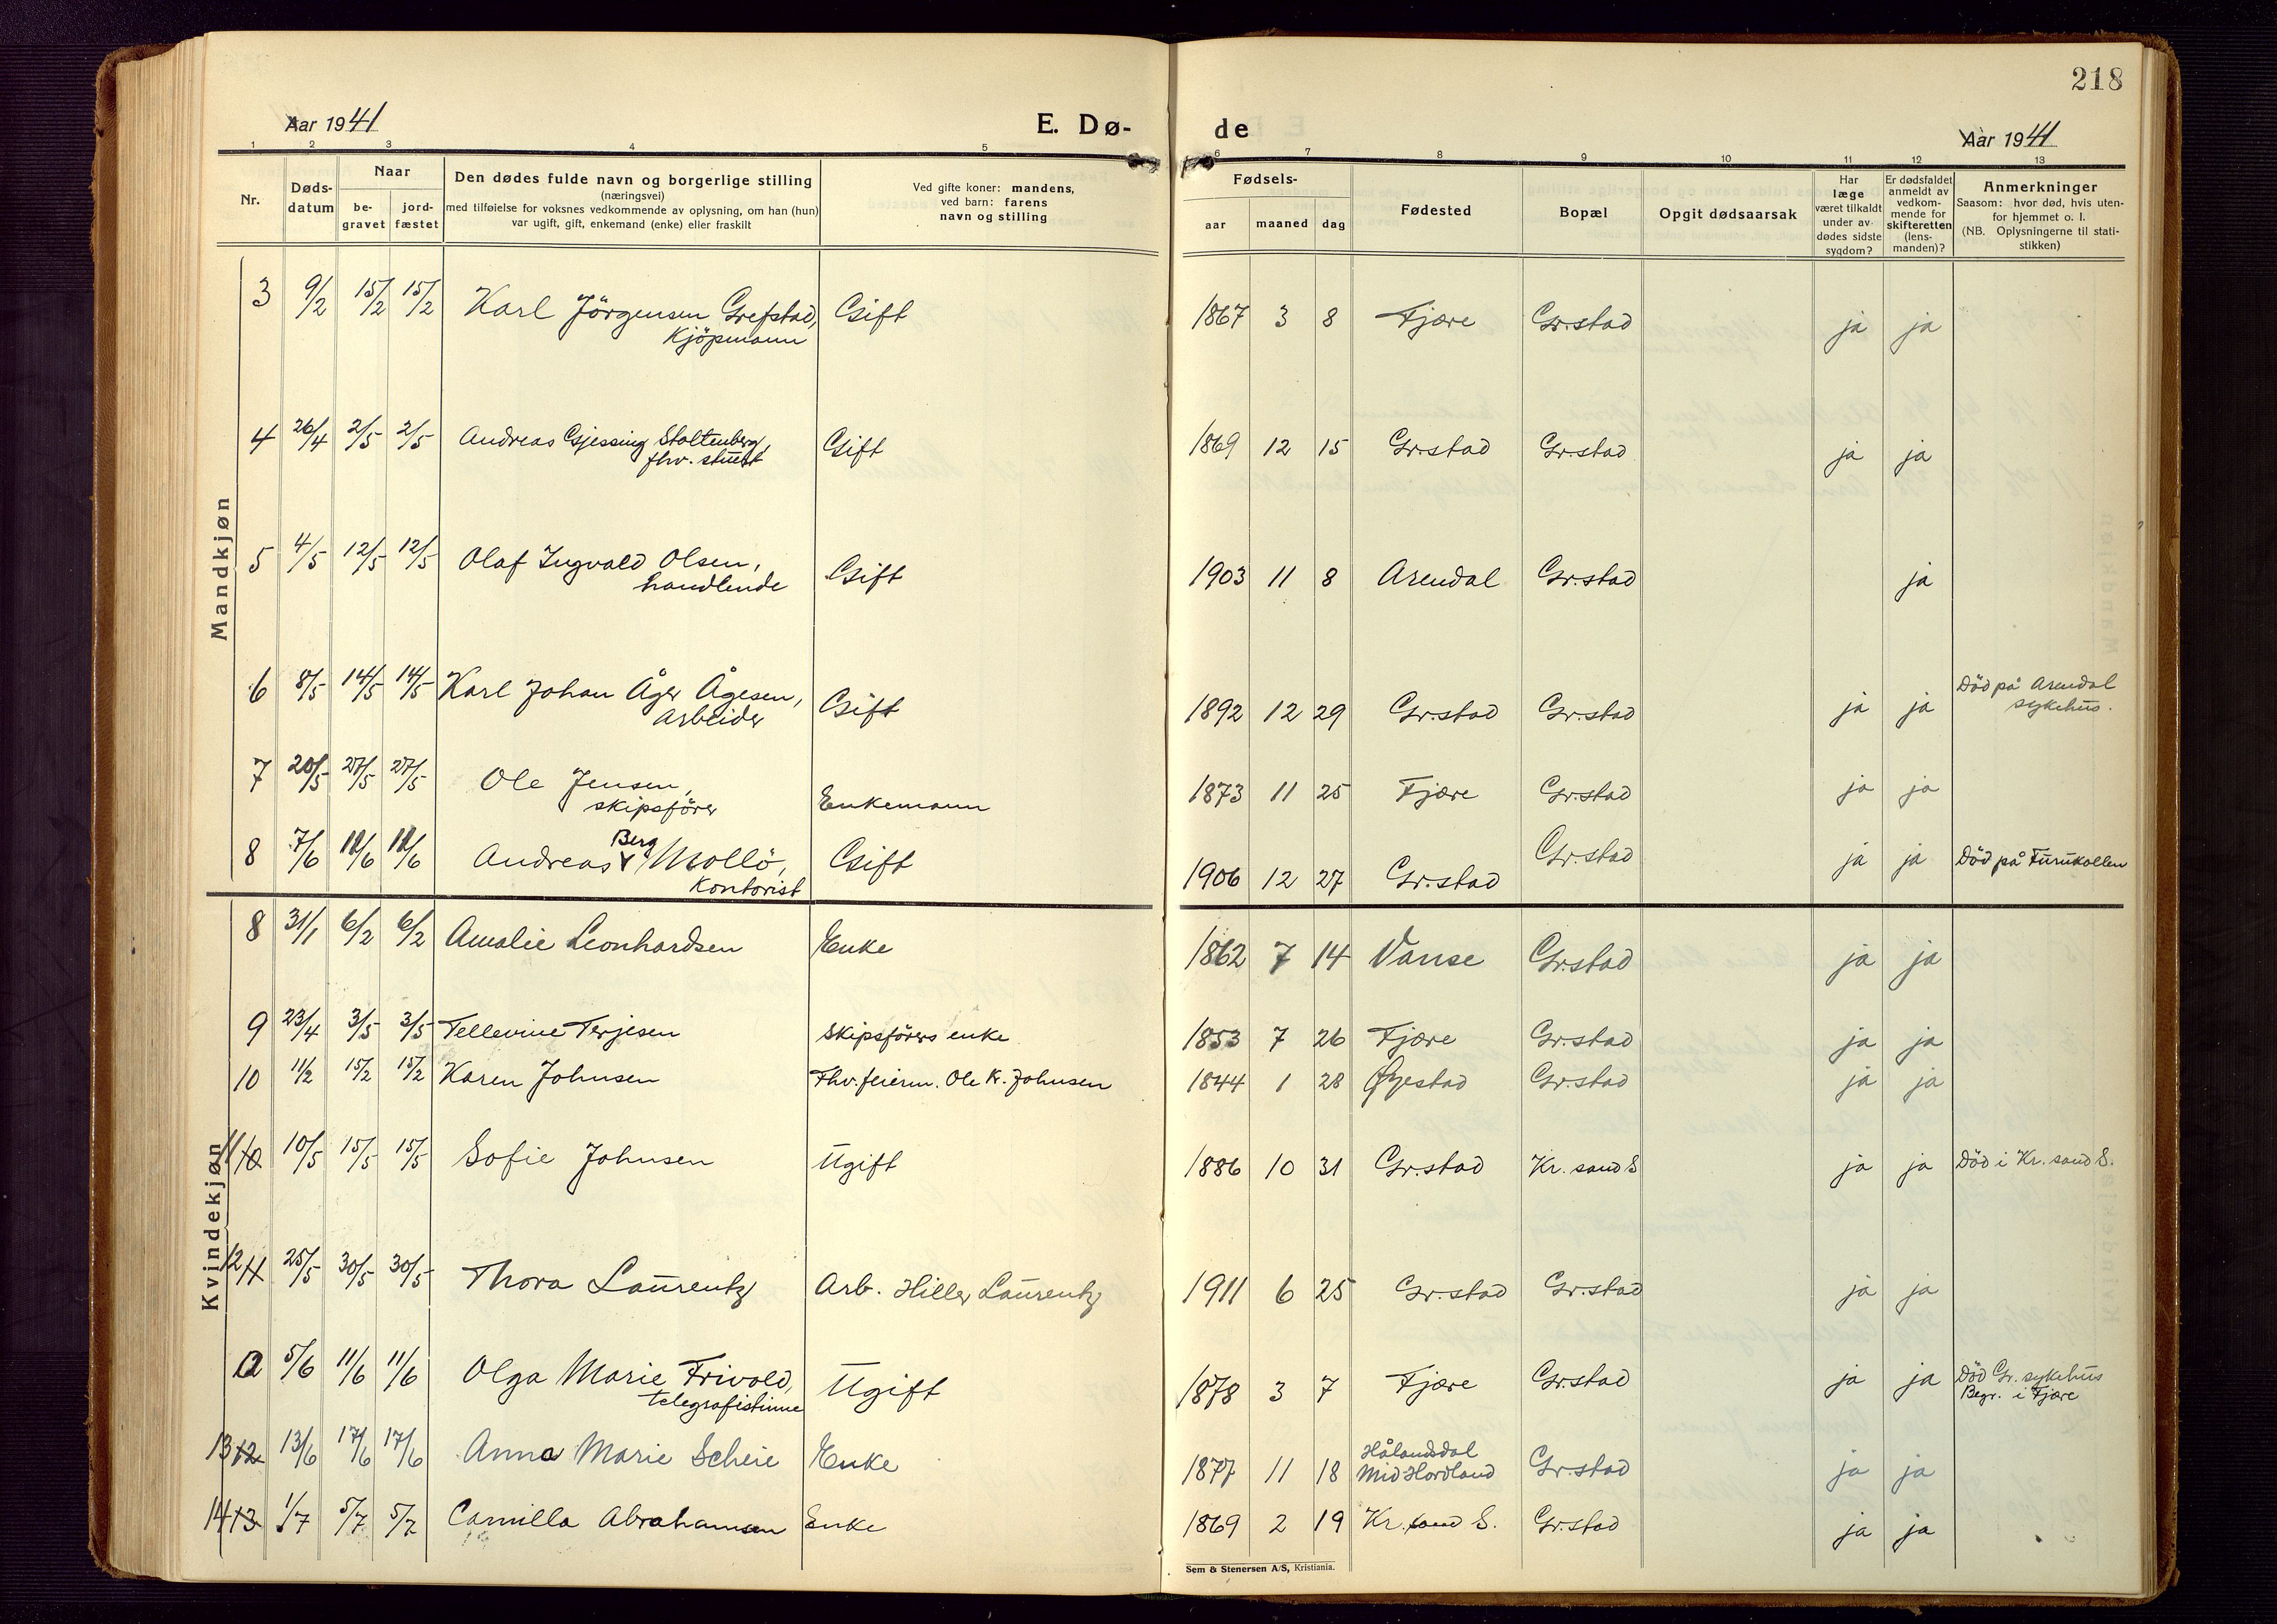 218
Aar 1941 E. Dø- de Aar 1941
1 2 3 4 5 6 7 8 9 10 11 12 13
Nr. Døds-datum Naar be-gravet jord-fæstet Den dødes fulde navn og borgerlige stilling (næringsvei) med tilføielse for voksnes vedkommende av oplysning, om han (hun) var ugift, gift, enkemand (enke) eller fraskilt Ved gifte koner: mandens, ved barn: farens navn og stilling Fødsels- aar maaned dag Fødested Bopæl Opgit dødsaarsak Har læge været tilkaldt under av-dødes sidste sygdom? Er dødsfaldet anmeldt av vedkom-mende for skifteretten (lens-manden)? Anmerkninger Saasom: hvor død, hvis uten-for hjemmet o. l. (NB. Oplysningerne til stati-stikken)
Mandkjøn
3 9/2 15/2 15/2 Karl Jörgensen Grefstad, Gift 1867 3 8 Fjære Gr.stad ja ja
Kjöpmann
4 26/4 2/5 2/5 Andreas Gjessing Stoltenberg, Gift 1869 12 15 Gr.stad Gr.stad ja ja
fhv.
5 4/5 12/5 12/5 Olaf Ingvald Olsen, Gift 1903 11 8 Arendal Gr.stad ja
handlende
6 8/5 14/5 14/5 Karl Johan Åger Ågesen, Gift 1892 12 29 Gr.stad Gr.stad ja ja Död på Arendal
Arbeider sykehus.
7 20/5 27/5 27/5 Ole Jensen, Enkemann 1873 11 25 Fjære Gr.stad ja ja
skipsförer
8 7/6 /6 /6 Andreas Berg Mollö, Gift 1906 12 27 Gr.stad Gr.stad ja ja Död på Furukollen
Kontorist
Kvindekjøn
8 31/1 6/2 6/2 Amalie Leonhardsen Enke 1862 7 14 Vanse Gr.stad ja ja
9 23/4 3/5 3/5 Tellevine Terjesen Skipsförers enke 1853 7 26 Fjære Gr.stad ja ja
10 11/2 15/2 15/2 Karen Johnsen Fhv. feierm. Ole K. Johnsen 1844 1 28 Øyestad Gr.stad ja ja
11 10 10/5 15/5 15/5 Sofie Johnsen Ugift 1886 10 31 Gr.stad Kr. sand S Död i Kr. sand S. ja ja
12 11 25/5 30/5 30/5 Thora Laurentz Arb. Hiller Laurentz 1911 6 25 Gr.stad Gr.stad ja ja
0 5/6 11/6 11/6 Olga Marie Frivold, Ugift 1878 3 7 Fjære Gr.stad ja ja Död Gr. sykehus
telegrafistinne Begr. i Fjære
13 12 13/6 17/6 17/6 Anna Marie Scheie Enke 1877 11 18 Hålandsdal Mid Hordland Gr.stad ja ja
14 13 1/7 5/7 5/7 Camilla Abrahamsen Enke 1869 2 19 Kr. sand S. Gr.stad ja ja
Sem & Stenersen A/S, Kristiania.